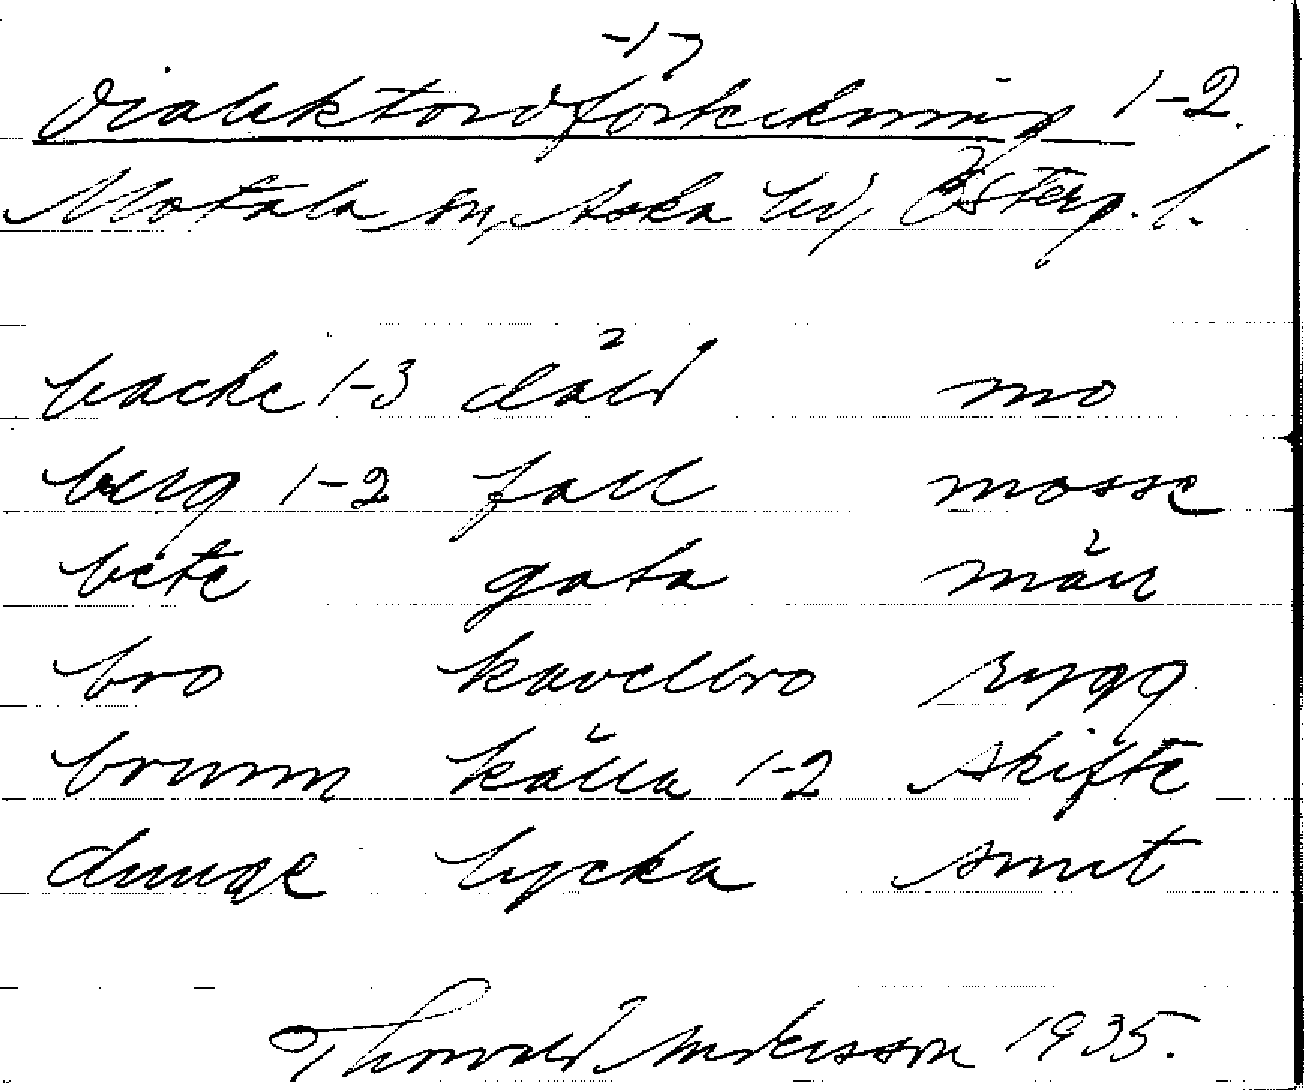 Dialektordförteckning 1-2.
Motala sn, Aska hd, Österg. l.
backe 1-3 däld mo
berg 1-2 fall mosse
bete gata mäll
bro kavelbro rygg
brunn källa 1-2 skifte
dunge lycka
Thorvald Andersson 1935.